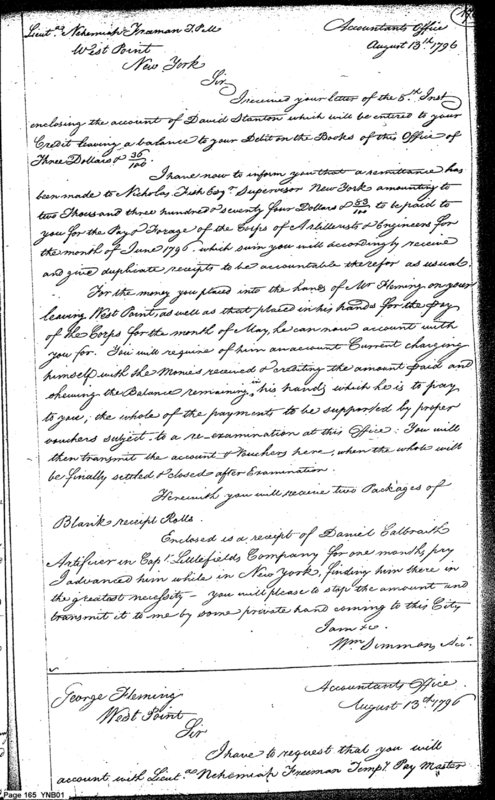 Lieut. Nehemiah Freeman T.P.M
Accountants Office
West Point
August 13th 1796
New York
Sir
I received your letter of the 5th Inst
enclosing the account of David Stanton which will be entered to your
Credit leaving a balance to your Debit on the Books of this Office of
Three Dollars & 36/100.
I have now to inform you that a remittance has
been made to Nicholas Fish Esqr. Supervisor New York amounting to
two Thousand three hundred & seventy four Dollars & 53/100 to be paid to
you for the Pay & Forage of the Corps of Artillerists & Engineers for
the month of June 1796. which sum you will accordingly receive
and give duplicate receipts to be accountable therefor as usual.
For the money you placed into the hands of Mr Fleming on your
leaving West Point, as well as that placed in his hands for the Pay
of the Corps for the month of May, he can now account with
you for. You will require of him an account Current charging
himself with the Monies received & crediting the amount paid and
shewing the Balance remaining in his hands which he is to pay
to you; the whole of the payments to be supported by proper
vouchers subject to a re-examination at this Office: You will
then transmit the account & Vouchers here, when the whole will
be finally settled & closed after Examination.
Herewith you will receive two Packages of
Blank receipt Rolls.
Enclosed is a receipt of Daniel Calbraith
Artificer in Capt. Littlefields Company for one months pay
I advanced him while in New York, finding him there in
the greatest necessity - you will please to stop the amount and
transmit it to me by some private hand coming to this City
I am &c.
Wm Simmons Acct.
George Fleming
Accountants Office
West Point
August 13th 1796
Sir
I have to request that you will
account with Lieut. Nehemiah Freeman Tempy. Pay Master
Page 165 YNB01